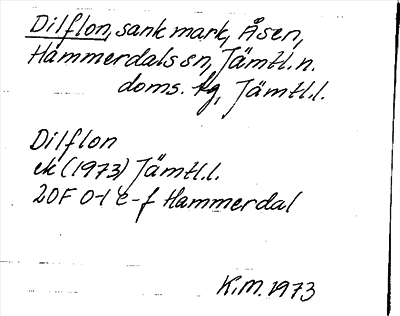 Dilflon, sank mark, Åsen,
Hammerdals sn, Jämtl. n.
doms. tg, Jämtl. l.
Dilflon
ek (1973) Jämtl. l.
20F 0-1 e-f Hammerdal
K.M. 1973